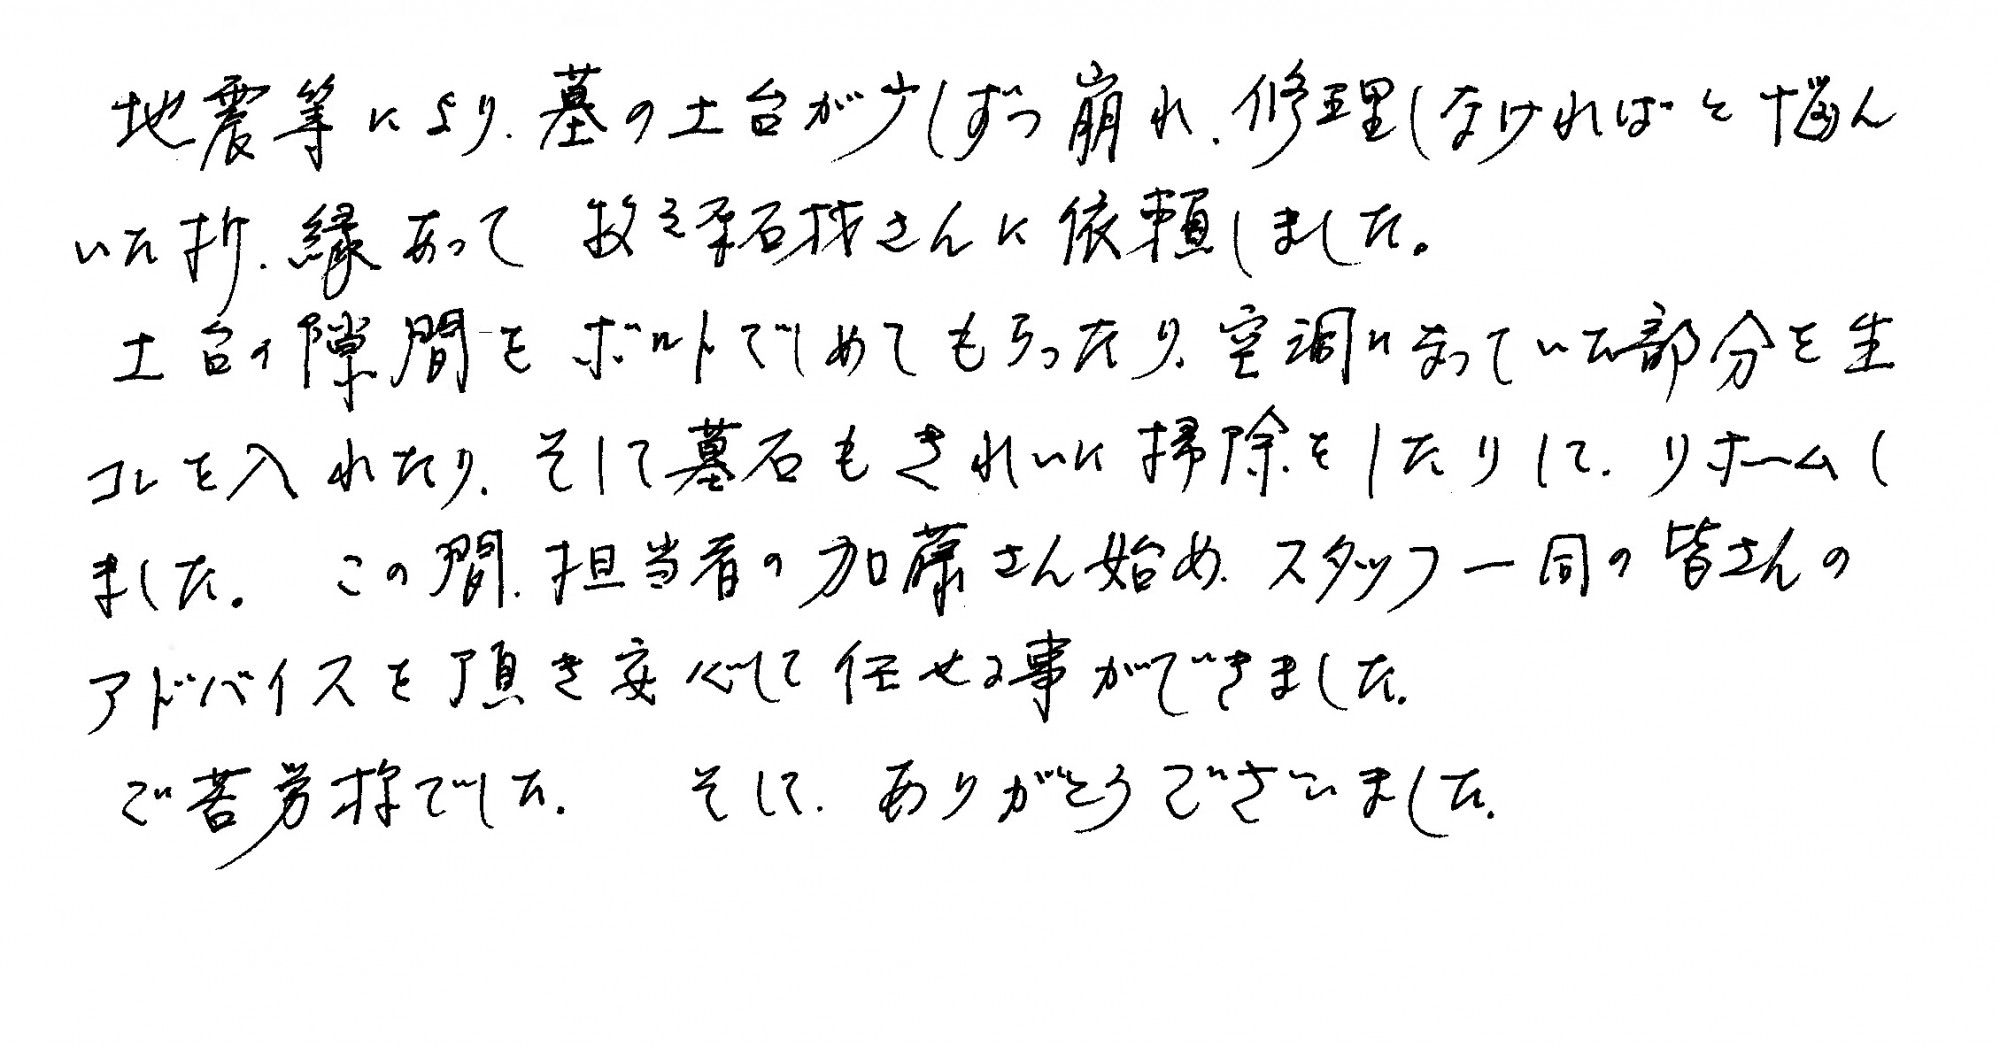 地震等により、墓の土台が少しずつ崩れ、修理しなければと悩ん
いた折、縁あって 牧之原石材さんに依頼しました。
土台の隙間をボルトでしめてもらったり、空洞になっていた部分を生
コンを入れたり、そして墓石もきれいに掃除をしたりして、リホームし
ました。 この間、担当者の加藤さん始め、スタッフ一同の皆さんの
アドバイスを頂き安心して任せる事ができました。
ご苦労様でした。 そして、ありがとうございました。